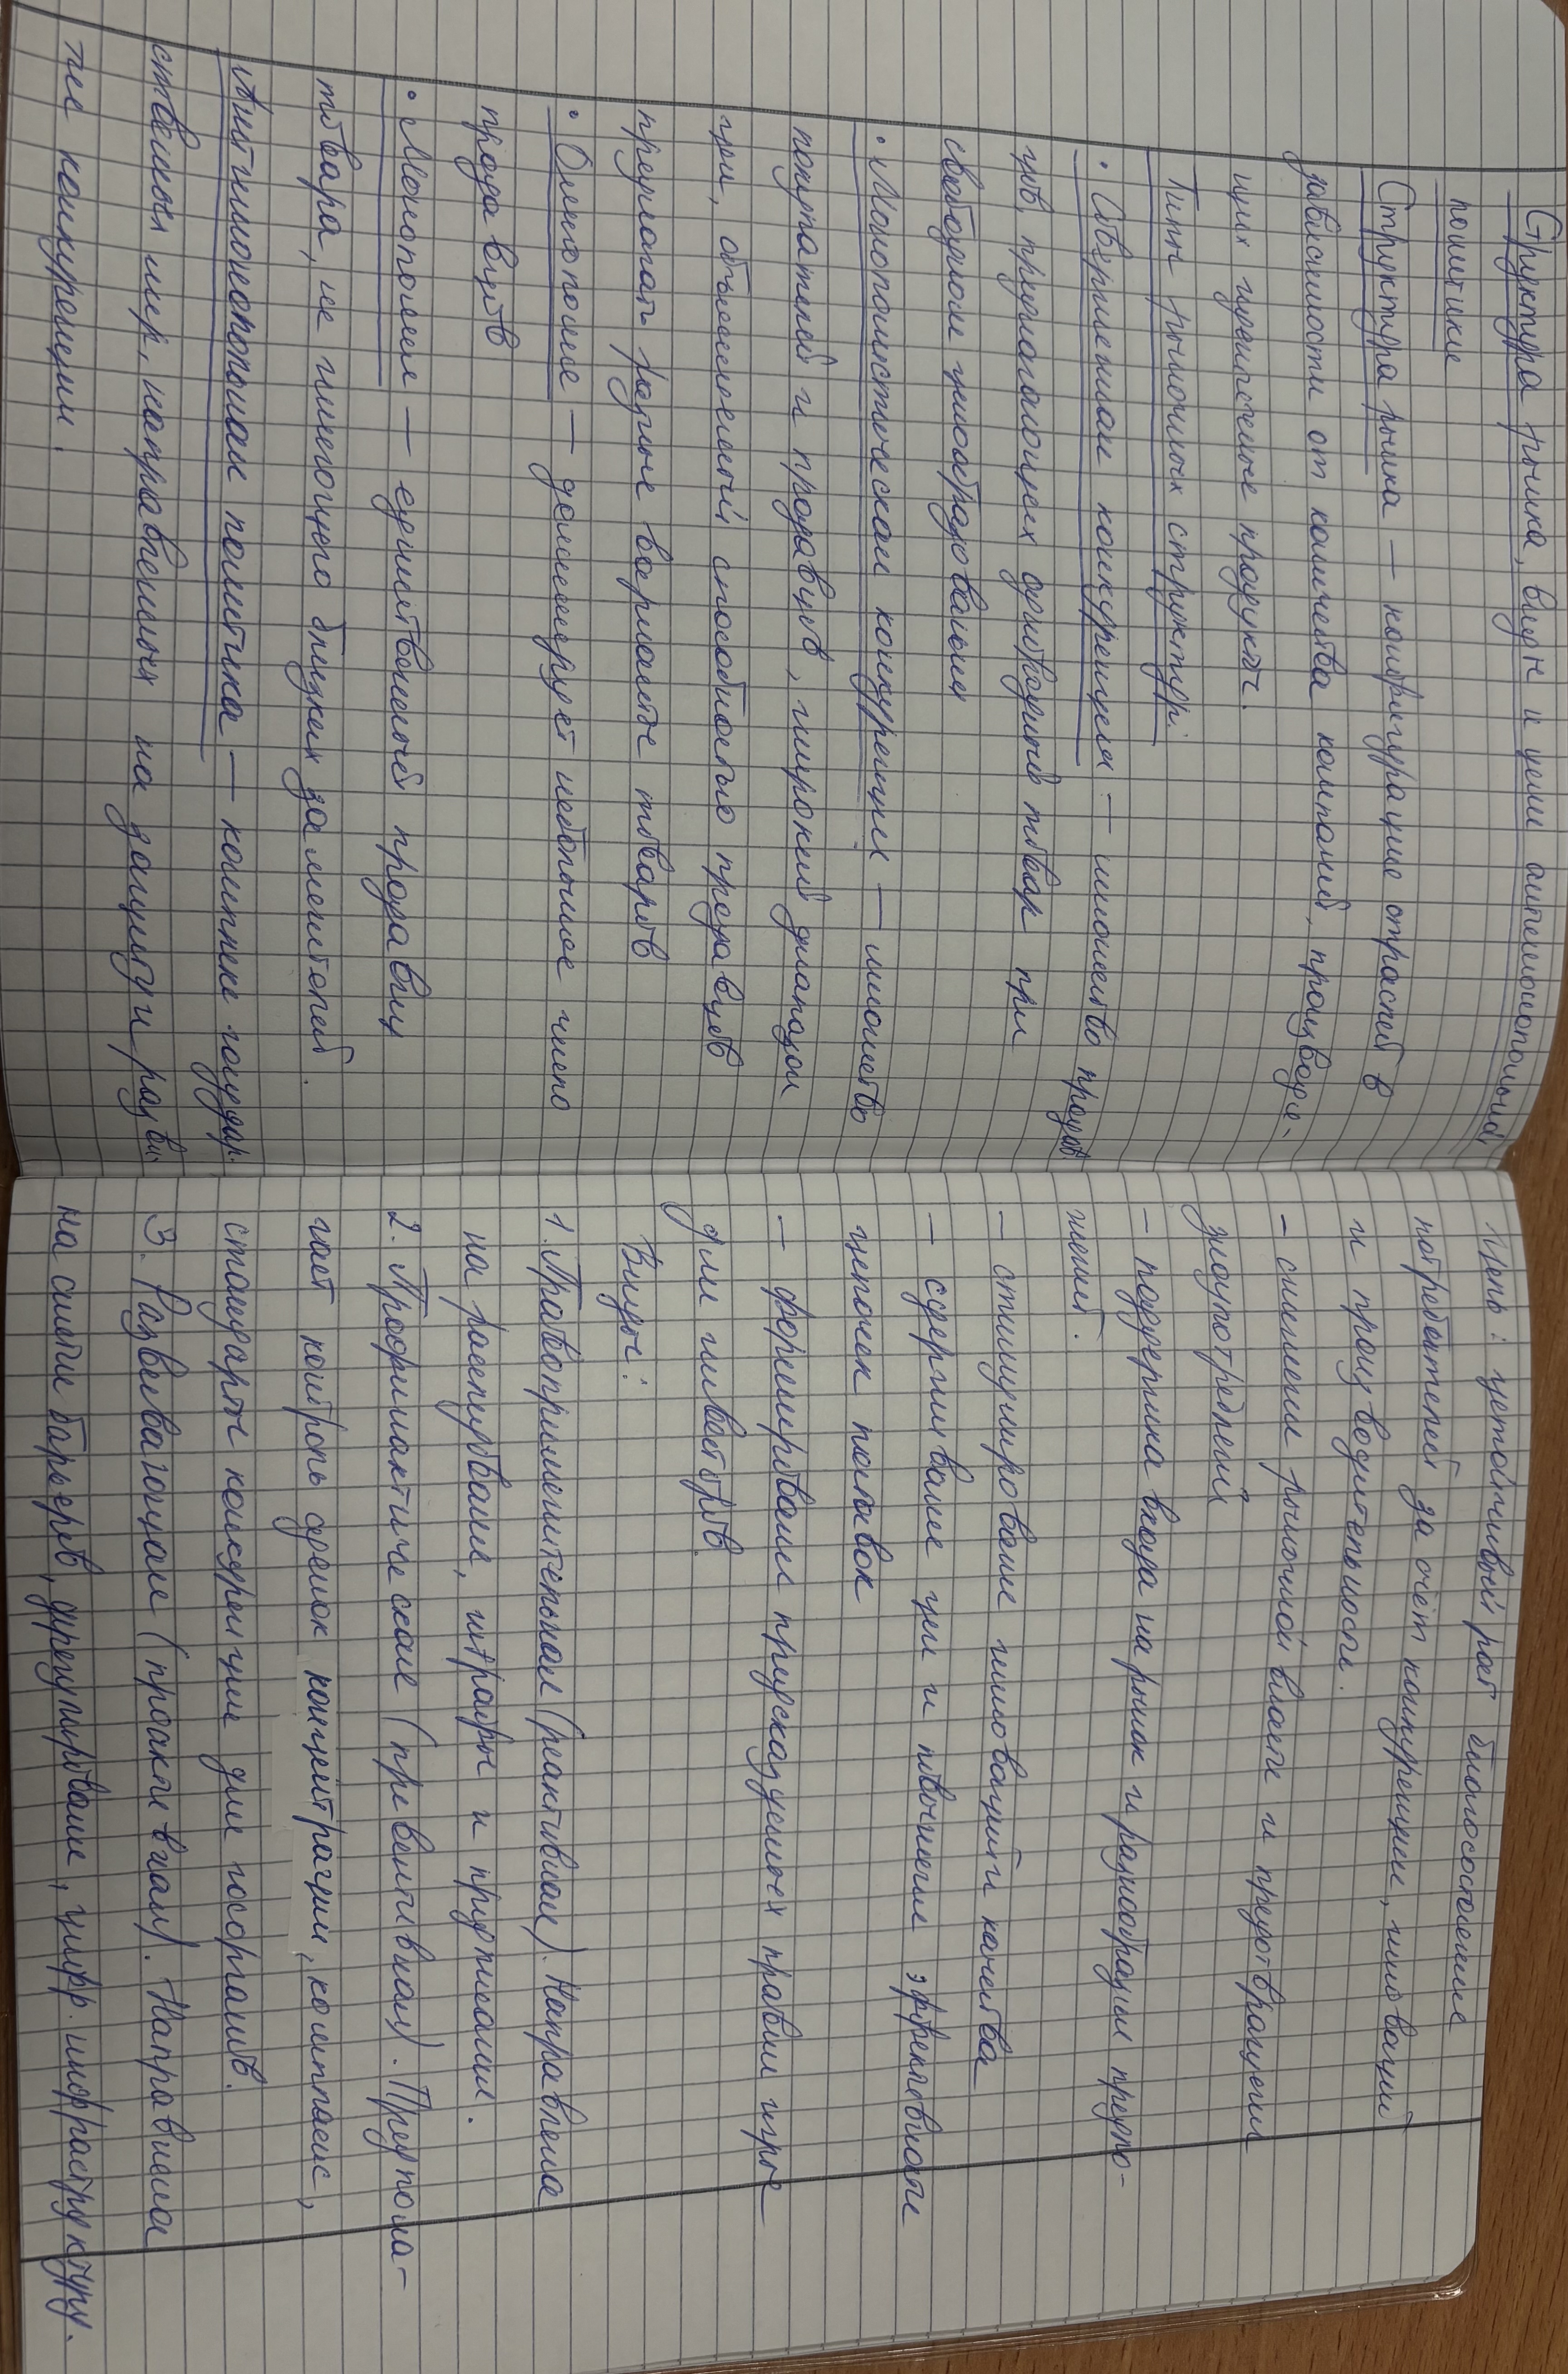 Структура рынка, виды и цели антимонопольной
политики
Структура рынка — конфигурация отраслей в
зависимости от количества компаний, производя-
щих идентичные продукты.
Типы рыночных структур:
• Совершенная конкуренция — множество продав
цов, предлагающих однородный товар при
свободном ценообразовании
• Монополистическая конкуренция — множество
покупателей и продавцов, широкий диапазон
цен, объясняемый способностью продавцов
предлагать разные варианты товаров
• Олигополия — доминирует небольшое число
продавцов
• Монополия — единственный продавец
товара, не имеющего близких заменителей.
Антимонопольная политика — комплекс государ-
ственных мер, направленных на защиту и разви
тие конкуренции.
Цель: устойчивый рост благосостояния
потребителей за счёт конкуренции, инноваций
и производительности.
– снижение рыночной власти и предотвращения
злоупотреблений
– поддержка входа на рынок и разнообразия предло-
жений.
– стимулирование инноваций и качества
– сдерживание цен и повышения эффективности
цепочек поставок
– формирование предсказуемых правил игры
для инвесторов.
Виды:
1. Правоприменительная (реактивная). Направлена
на расследование, штрафы и предписания.
2. Профилактическая (превентивная). Предпола-
гает контроль сделок концентрации, комплаенс,
стандарты конкуренции для госорганов.
3. Развивающая (проактивная). Направлена
на снятие барьеров, дерегулирование, цифр. инфраструктуру.